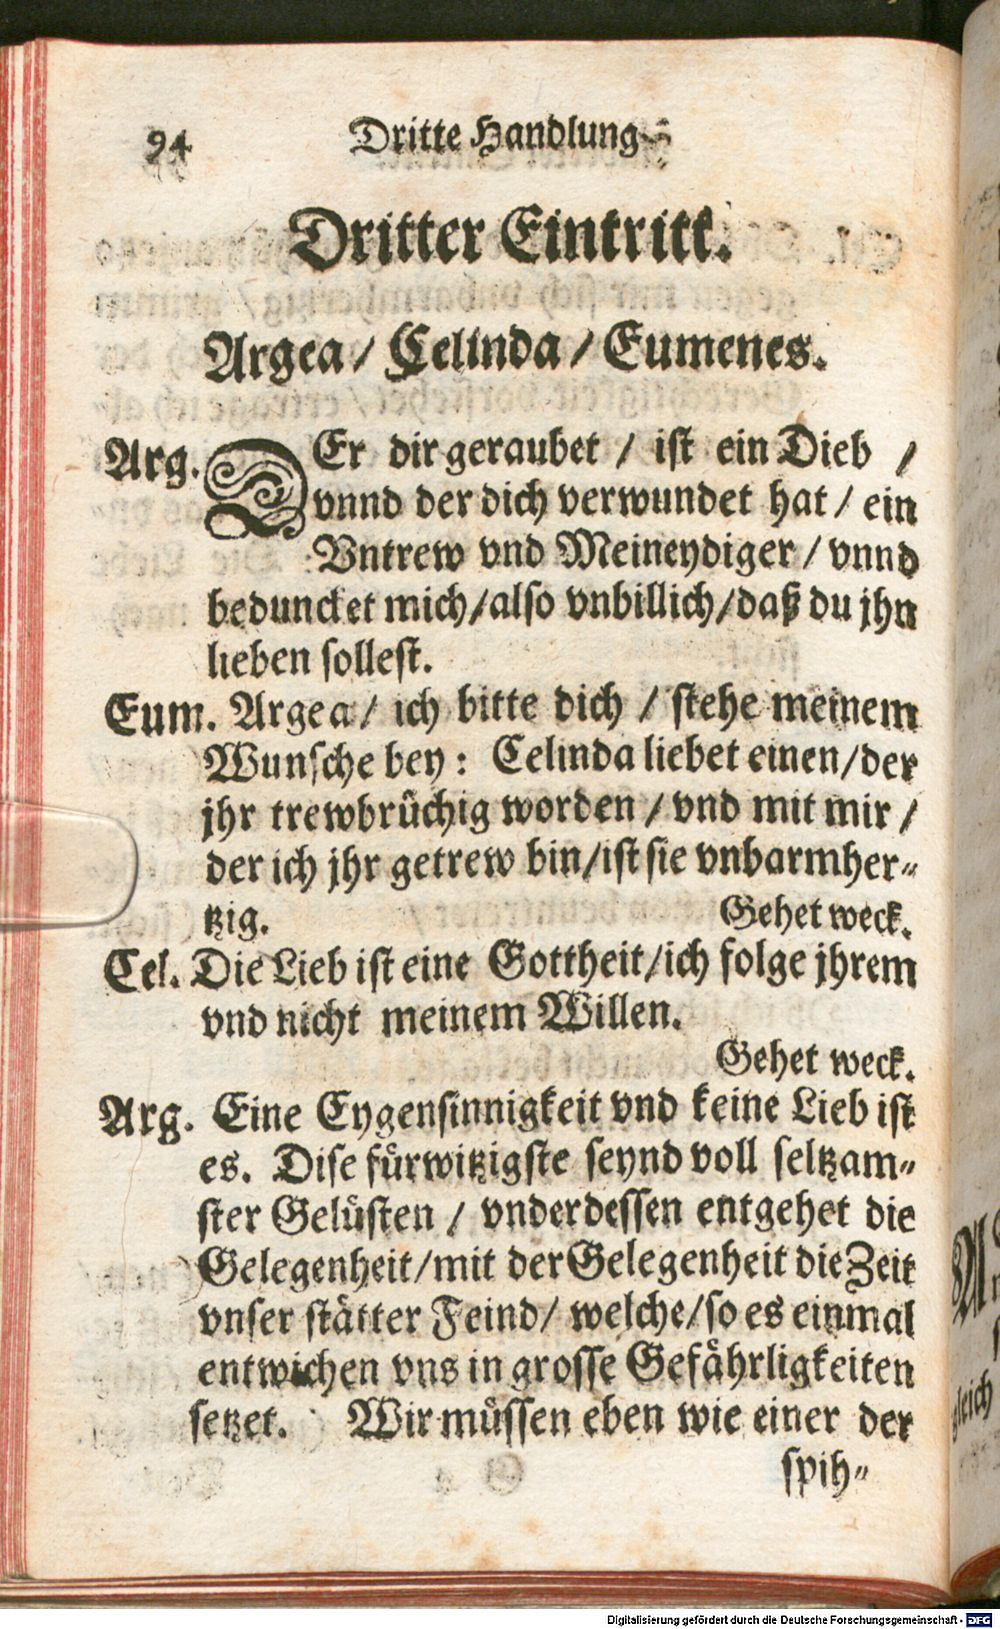 94 Dritte Handlung
Dritter Eintritt.
Argea / Celinda / Eumenes.
Arg. DEr dir geraubet / ist ein Dieb /
vnnd der dich verwundet hat / ein
Vntrew vnd Meineydiger / vnnd
beduncket mich/also vnbillich/daß du jhn
lieben sollest.
Eum. Argea/ ich bitte dich / stehe meinem
Wunsche bey: Celinda liebet einen/der
jhr trewbrüchig worden / vnd mit mir /
der ich jhr getrew bin/ist sie vnbarmher-
tzig. Gehet weck.
Cel. Die Lieb ist eine Gottheit/ich folge jhrem
vnd nicht meinem Willen.
Gehet weck.
Arg. Eine Eygensinnigkeit vnd keine Lieb ist
es. Dise fürwitzigste seynd voll seltzam-
ster Gelüsten / vnderdessen entgehet die
Gelegenheit/mit der Gelegenheit die Zeit
vnser stätter Feind/ welche/so es einmal
entwichen vns in grosse Gefährligkeiten
setzet. Wir müssen eben wie einer der
spih-
gleich
Digitalisierung gefördert durch die Deutsche Forschungsgemeinschaft - DFG